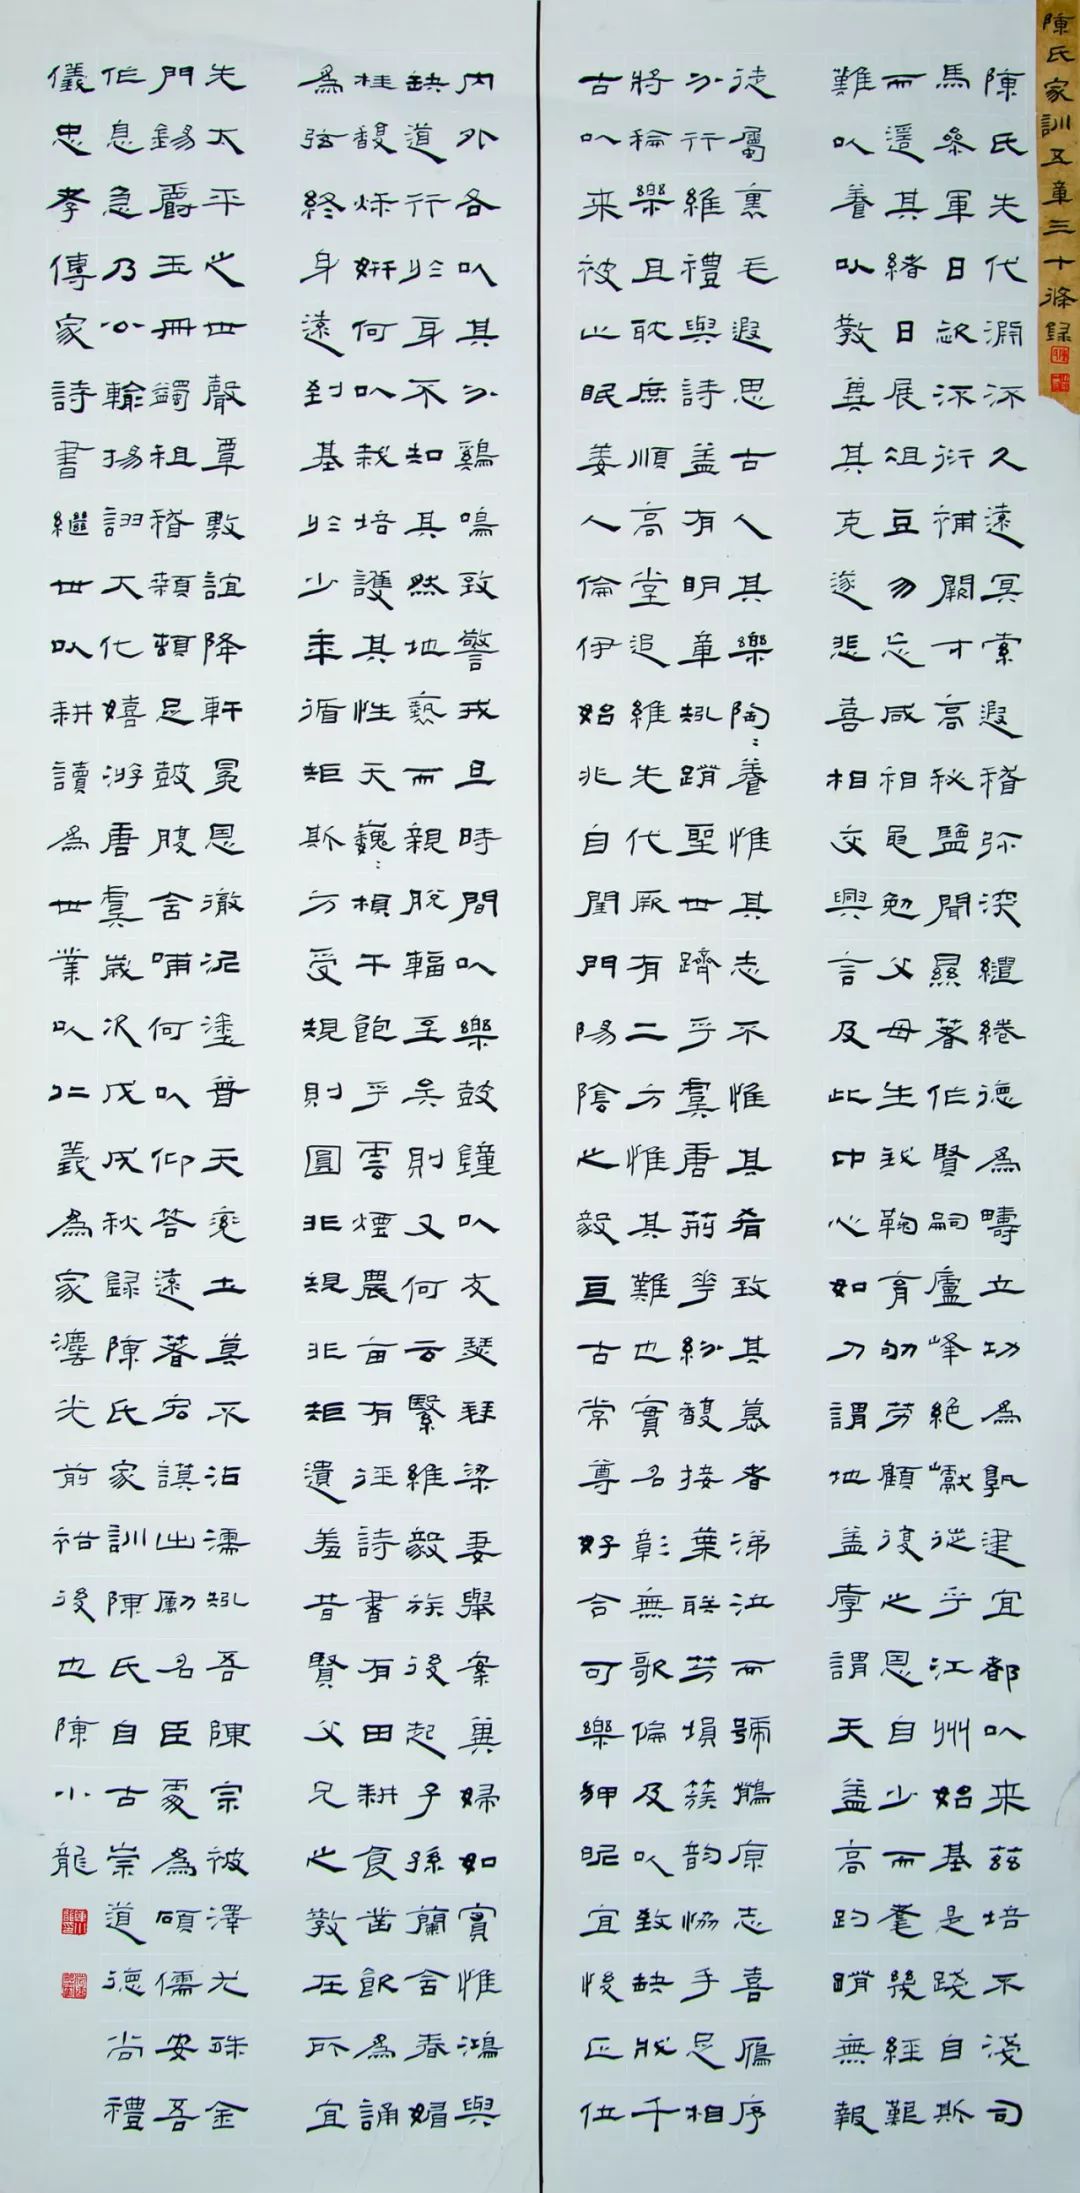 陳氏家訓五章三十條録
陳氏先代淵流久遠冥索遐稽弥深繾綣德為疇立功為孰建宜都以来茲培不淺司
馬參軍日啟流衍補闕才高秘鹽聞㬎著作賢嗣廬峰絕巘從乎江州始基是踐自斯
而還其緒日展俎豆勿忘咸相黽勉父母生我鞠育劬勞顧復之恩自少而耄後經艱
難以養以教冀其克遂悲喜相交興言及此中心如刀謂地盖厚謂天盖高跼蹐無報
徒屬裏毛遐思古人其樂陶:養惟其志不惟其肴致其慕者涕泣而號鶺原志喜雁序
分行維禮與詩盖有明章矧蹐聖世躋乎虞唐荊花紛馥接葉联芳塤篪韵協手足相
將輪樂且耽庶順高堂追維先代厥有二方惟其難也實名彰無歌偏及以致缺戕千
古以来被止眠姜人倫伊始兆自閨門陽陰之毅亘古常尊好合可樂狎昵宜悛正位
内外各以其分鷄鳴致警戒旦時間以樂鼓鐘以友瑟琴梁妻舉案冀婦如賓惟鴻與
缺道行於身不知其然地爇而親脱輻至吴則又何云繄維毅族後起子孫蘭舍春媚
桂馥烁妍何以栽培護其性天巍:楨干飽乎雲煙農亩有征詩書有田耕食凿飲為誦
為弦終身遠到基於少年循矩斯方受規則圓非規非矩遺羞昔賢父兄之教在所宜
先太平之世聲覃敷誼降軒冕恩徹泥塗普天率土莫不沾濡矧吾陳宗被澤尤殊金
門錫爵玉冊蠲租稽顙頓足鼓腹含哺何以仰答遠著宏謨出勵名臣處為碩儒安吾
作息急乃公輸揚詡大化嬉游唐虞歲次戊戌秋録陳氏家訓陳氏自古崇道德尚禮
儀忠孝傳家詩書繼世以耕讀為世業以仁義為家灋光前祐後也陳小龍